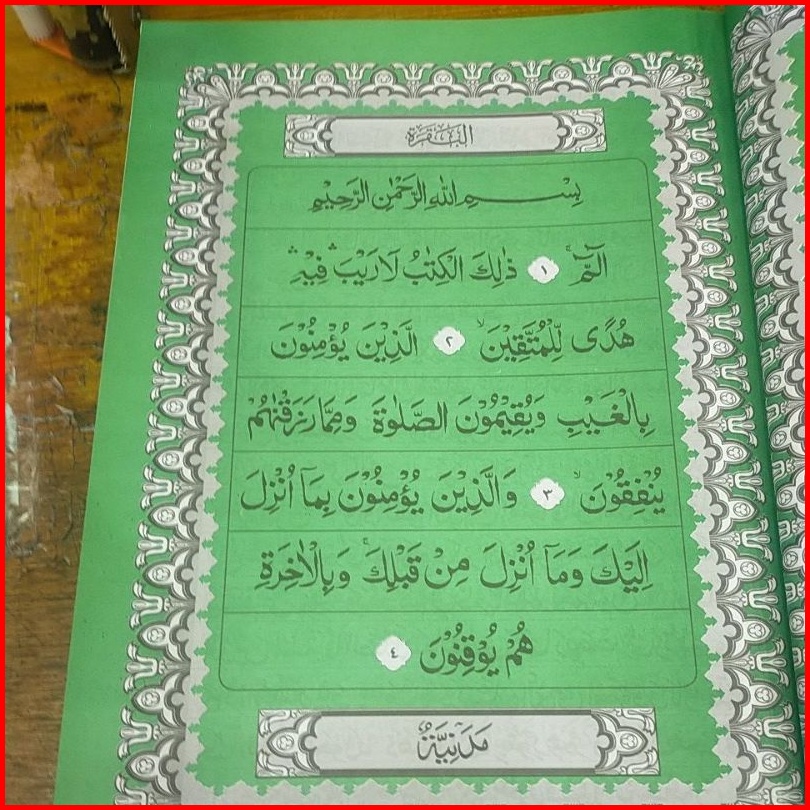 البقرة
بِسْمِ اللّٰهِ الرَّحْمٰنِ الرَّحِيْمِ
الۤمّۤ ۚ ١ ذٰلِكَ الْكِتٰبُ لَا رَيْبَ ۛ فِيْهِ ۛ
هُدًى لِّلْمُتَّقِيْنَ ۙ ٢ الَّذِيْنَ يُؤْمِنُوْنَ
بِالْغَيْبِ وَيُقِيْمُوْنَ الصَّلٰوةَ وَمِمَّا رَزَقْنٰهُمْ
يُنْفِقُوْنَ ۙ ٣ وَالَّذِيْنَ يُؤْمِنُوْنَ بِمَآ اُنْزِلَ
اِلَيْكَ وَمَآ اُنْزِلَ مِنْ قَبْلِكَ ۚ وَبِالْاٰخِرَةِ
هُمْ يُوْقِنُوْنَ ٤
مَدَنِيَّةٌ